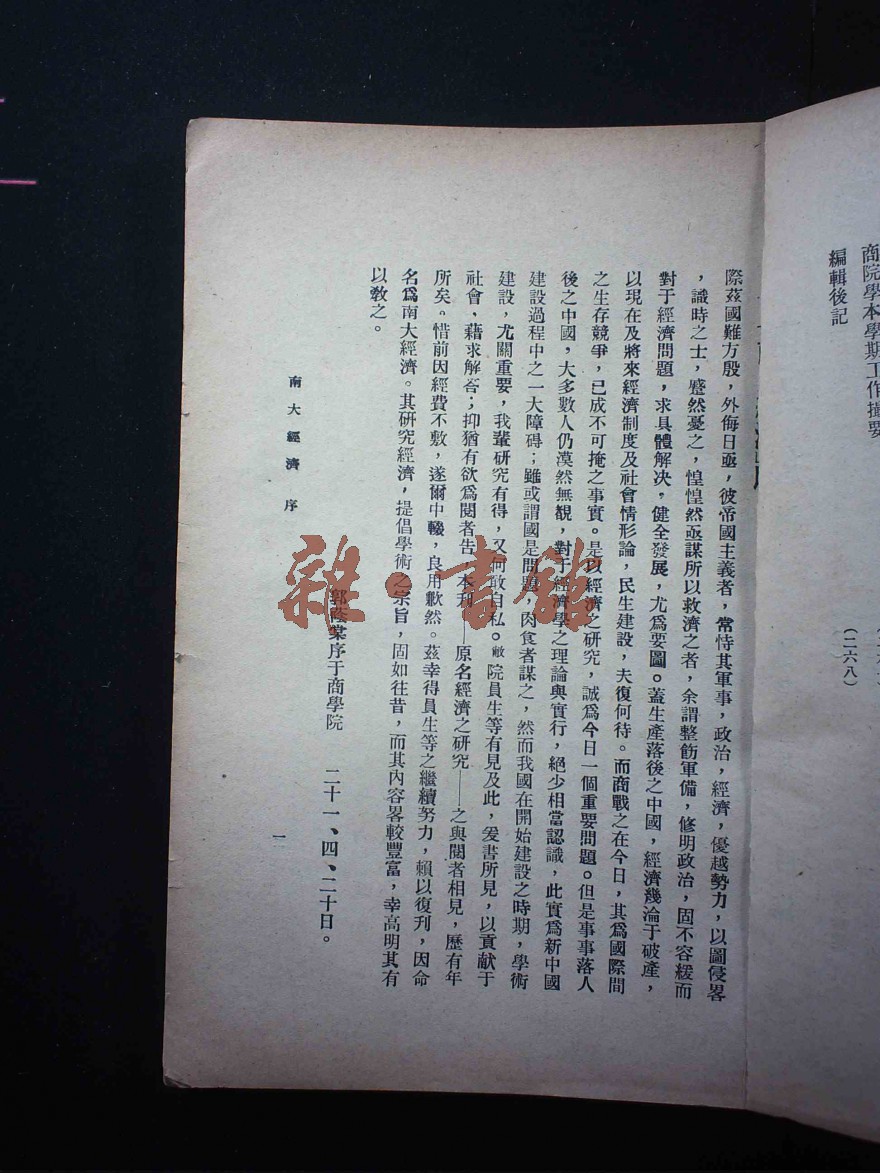 商院學本學期工作撮要
編輯後記
(二六八)
際茲國難方殷，外侮日亟，彼帝國主義者，常恃其軍事，政治，經濟，優越勢力，以圖侵畧
，識時之士，蹙然憂之，惶惶然亟謀所以救濟之者，余謂整飭軍備，修明政治，固不容緩而
對于經濟問題，求具體解决，健全發展，尤爲要圖。蓋生產落後之中國，經濟幾淪于破產，
以現在及將來經濟制度及社會情形論，民生建設，夫復何待。而商戰之在今日，其爲國際間
之生存競爭，已成不可掩之事實。是以經濟之研究，誠爲今日一個重要問題。但是事事落人
後之中國，大多數人仍漠然無覩，對于經濟學之理論與實行，絕少相當認識，此實爲新中國
建設過程中之一大障碍；雖或謂國是問題，肉食者謀之，然而我國在開始建設之時期，學術
建設，尤關重要，我輩研究有得，又何敢自私。敝院員生等有見及此，爰書所見，以貢献于
社會，藉求解答；抑猶有欲爲閱者告，本刊——原名經濟之研究——之與閱者相見，歷有年
所矣。惜前因經費不敷，遂爾中輟，良用歉然。茲幸得員生等之繼續努力，賴以復刋，因命
名爲南大經濟。其研究經濟，提倡學術之宗旨，固如往昔，而其內容畧較豐富，幸高明其有
以敎之。
郭蔭棠序于商學院　二十一、四、二十日。
南大經濟　序
一
雜·書館